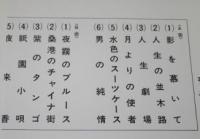 (1)影を慕いて
(2)人生の並木路
(3)人生劇場
(4)月よりの使者
(5)水色のスーツケース
(6)男の純情
(1)夜霧のブルース
(2)桑港のチャイナ街
(3)紫のタンゴ
(4)祇園小唄
(5)夜来香